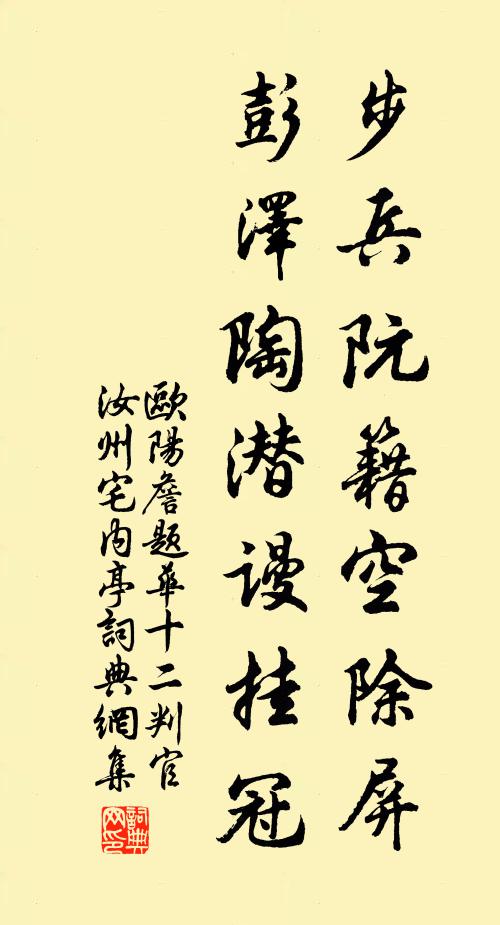 步兵阮籍空除屏
彭澤陶潜謾挂冠
歐陽詹題華十二判官
汝州宅内亭詞典網集
詞典網印